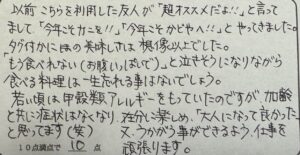 以前こちらを利用した友人が「超オススメだよ!!」と言って
まして「今年こそカニを!!」「今年こそかどやへ!!」とやってきました。
タグ付かにのの美味しさは想像以上でした。
もう食べれない(お腹いっぱいで)と泣きそうになりながら
食べる料理は一生忘れる事はないでしょう。
若い頃は甲殻類アレルギーをもっていたのですが、加齢
と共に症状はなくなり、存分に楽しめ、「大人になって良かった」
と思ってます(笑) 又、うかがう事ができるよう、仕事を
10点満点で 10 点 頑張ります。